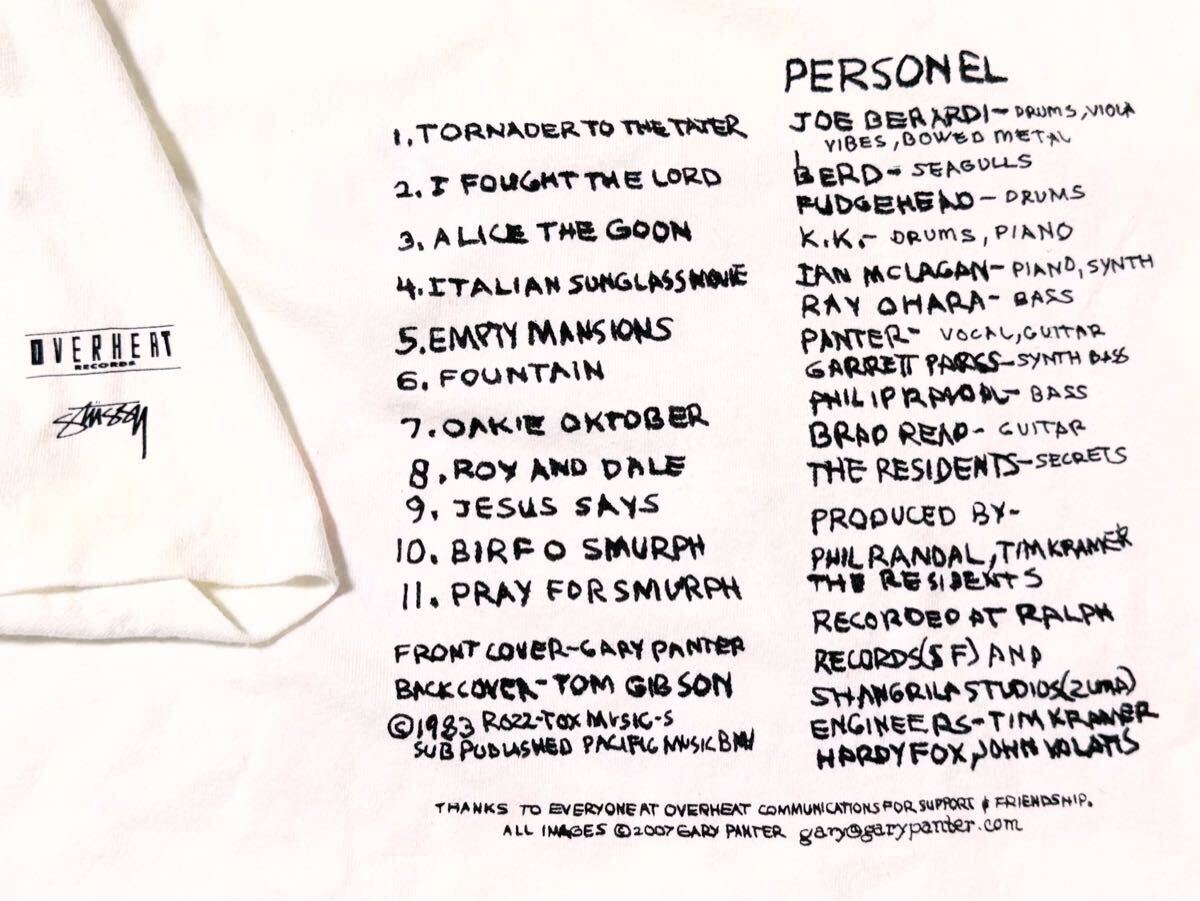 OVERHEAT
RECORDS
STÜSSY
1. TORNADER TO THE TATER
2. I FOUGHT THE LORD
3. ALICE THE GOON
4. ITALIAN SUNGLASS MOVIE
5. EMPTY MANSIONS
6. FOUNTAIN
7. OAKIE OKTOBER
8. ROY AND DALE
9. JESUS SAYS
10. BIRFO SMURPH
11. PRAY FOR SMURPH
FRONT COVER-GARY PANTER
BACK COVER-TOM GIBSON
©1983 ROZZ-TOX MUSIC-S
SUB PUBLISHED PACIFIC MUSIC BMI
PERSONEL
JOE BERARDI-DRUMS, VIOLA
VIBES, BOWED METAL
BERD-SEAGULLS
FUDGEHEAD-DRUMS
K.K.-DRUMS, PIANO
IAN MCLAGAN-PIANO, SYNTH
RAY OHARA-BASS
PANTER-VOCAL, GUITAR
GARRETT PARKS-SYNTH BASS
PHILIP RANDAL-BASS
BRAD READ-GUITAR
THE RESIDENTS-SECRETS
PRODUCED BY-
PHIL RANDAL, TIM KRAMER
THE RESIDENTS
RECORDED AT RALPH
RECORDS(SF) AND
SHANGRILA STUDIOS(ZUMA)
ENGINEERS-TIM KRAMER
HARDY FOX, JOHN
THANKS TO EVERYONE AT OVERHEAT COMMUNICATIONS FOR SUPPORT & FRIENDSHIP.
ALL IMAGES ©2007 GARY PANTER gary@garypanter.com